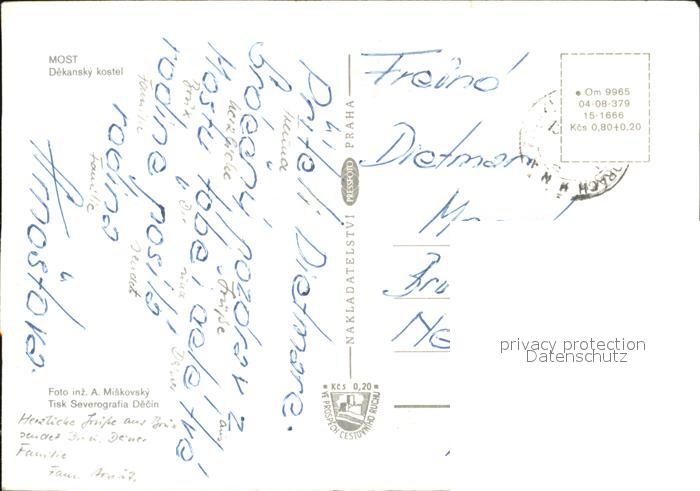 MOST
Děkanský kostel
Příteli Dietmare.
Srdečný pozdrav z
Mostu tobě i celé tvé
rodině posílá
rodina
Arnoštova.
Foto inž. A. Miškovský
Tisk Severografia Děčín
Herzliche Grüße aus Brüx
sendet Dir u. Deiner
Familie
Fam.
NAKLADATELSTVÍ PRESSFOTO PRAHA
Kčs 0,20
VE PROSPĚCH CESTOVNÍHO RUCHU
Om 9965
04-08-379
15-1666
Kčs 0,80+0,20
Freund
Dietmar
privacy protection
Datenschutz